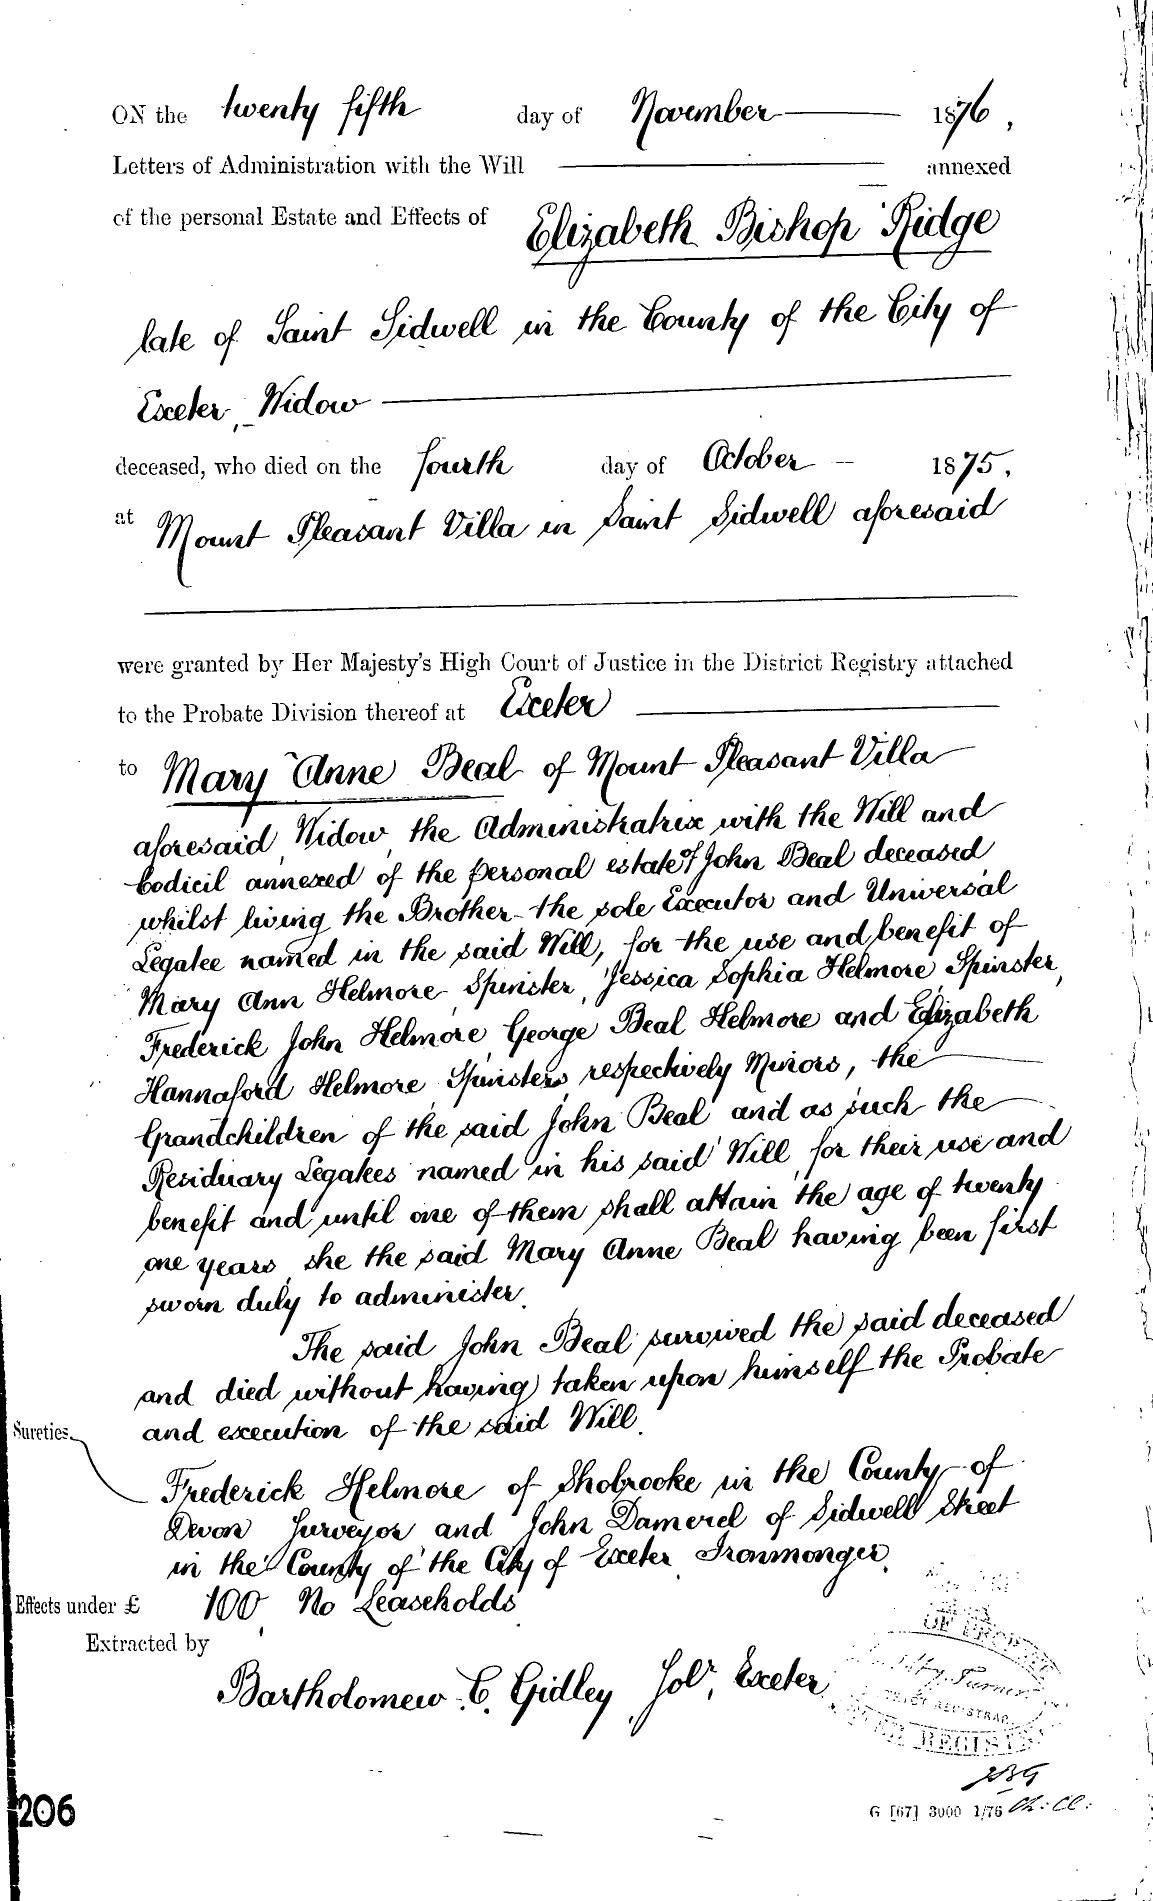 ON the twenty fifth day of November 1876,
Letters of Administration with the Will annexed
of the personal Estate and Effects of Elizabeth Bishop Ridge
late of Saint Sidwell in the County of the City of
Exeter, Widow
deceased, who died on the fourth day of October – 1875,
at Mount Pleasant Villa in Saint Sidwell aforesaid
were granted by Her Majesty's High Court of Justice in the District Registry attached
to the Probate Division thereof at Exeter
to Mary Anne Beal of Mount Pleasant Villa
aforesaid, Widow, the Administratrix with the Will and
Codicil annexed of the personal estate of John Beal deceased
whilst living the Brother the sole Executor and Universal
Legatee named in the said Will, for the use and benefit of
Mary Ann Helmore Spinster, Jessica Sophia Helmore Spinster,
Frederick John Helmore George Beal Helmore and Elizabeth
Hannaford Helmore Spinster, respectively Minors, the
Grandchildren of the said John Beal and as such the
Residuary Legatees named in his said Will, for their use and
benefit and until one of them shall attain the age of twenty
one years, she the said Mary Anne Beal having been first
sworn duly to administer.
The said John Beal survived the said deceased
and died without having taken upon himself the Probate
and execution of the said Will.
Sureties.
Frederick Helmore of Shobrooke in the County of
Devon Surveyor and John Damerel of Sidwell Street
in the County of the City of Exeter Ironmonger.
Effects under £ 100, No Leaseholds
Extracted by
Bartholomew C. Gidley, Solr, Exeter
OF PROBATE
Turner
REGISTRAR
REGISTRY
G [67] 3000 1/76 Ch: Cl:
206